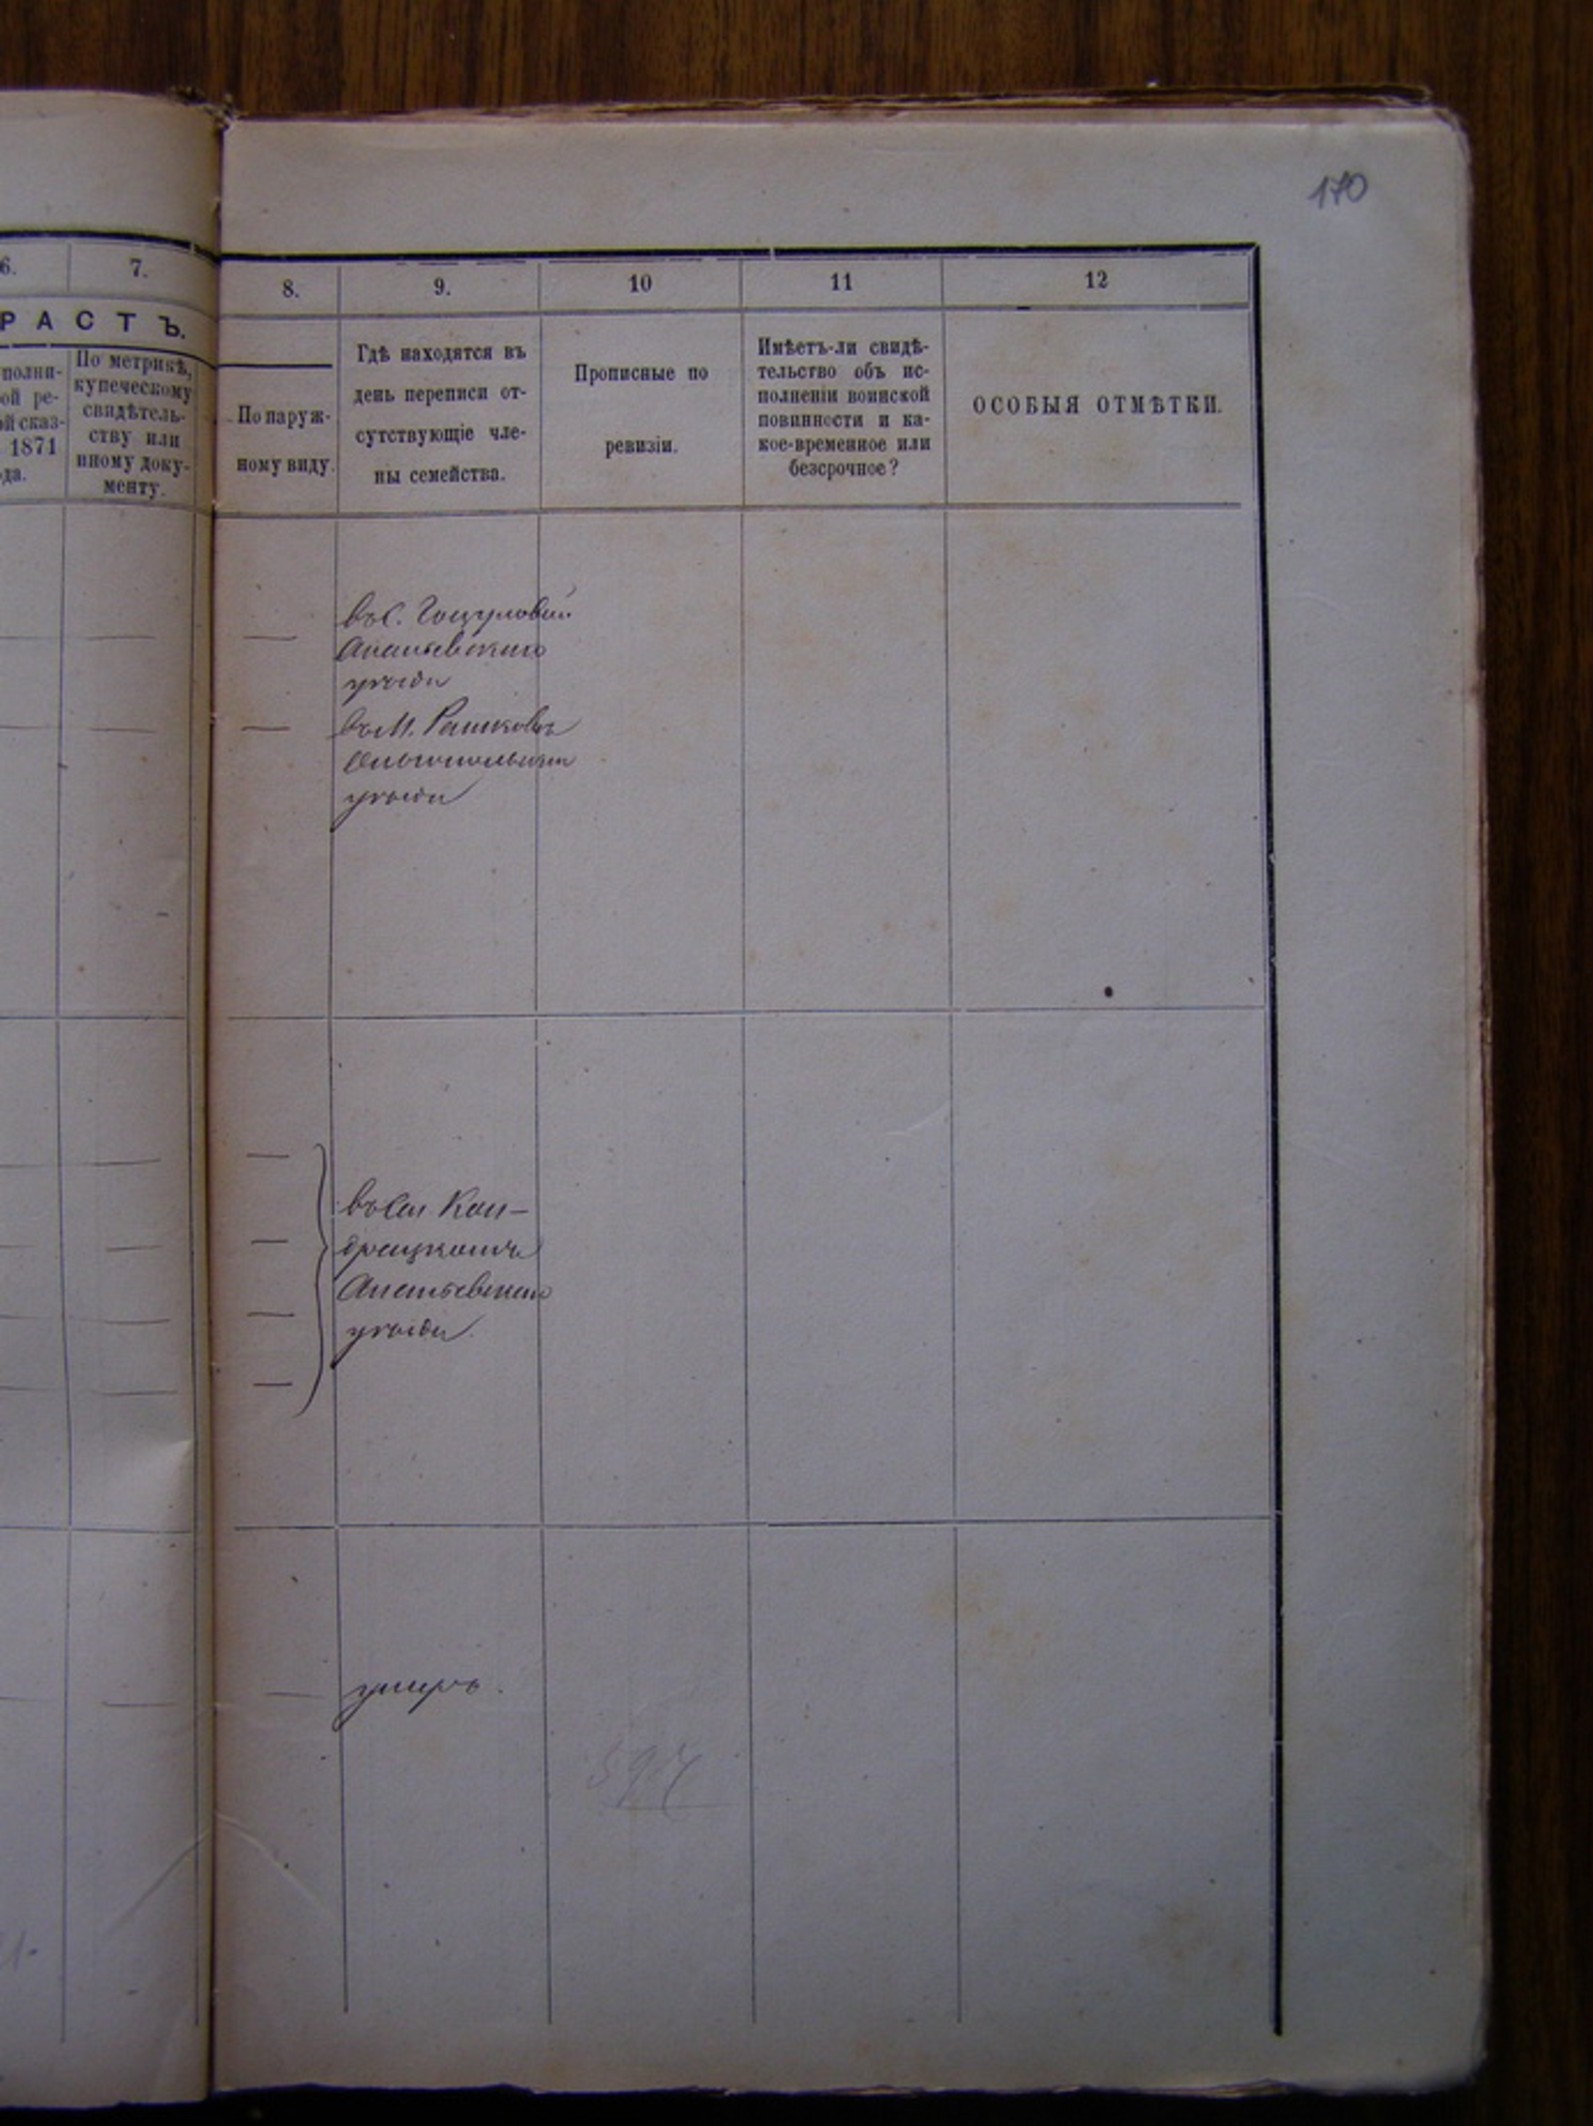 170
6.
7.
8.
9.
10
11
12
РАСТЪ.
полни-
ой ре-
ой сказ-
1871
да.
По метрикѣ,
купеческому
свидѣтель-
ству или
иному доку-
менту.
По наруж-
ному виду.
Гдѣ находятся въ
день переписи от-
сутствующіе чле-
ны семейства.
Прописные по
ревизіи.
Имѣетъ-ли свидѣ-
тельство объ ис-
полненіи воинской
повинности и ка-
кое-временное или
безсрочное?
ОСОБЫЯ ОТМѢТКИ.
въ с.
Ананьевскаго
уѣзда
въ М. Рашковѣ
Ольгопольскаго
уѣзда
въ Сел. Кон-
Ананьевскаго
уѣзда.
умеръ.